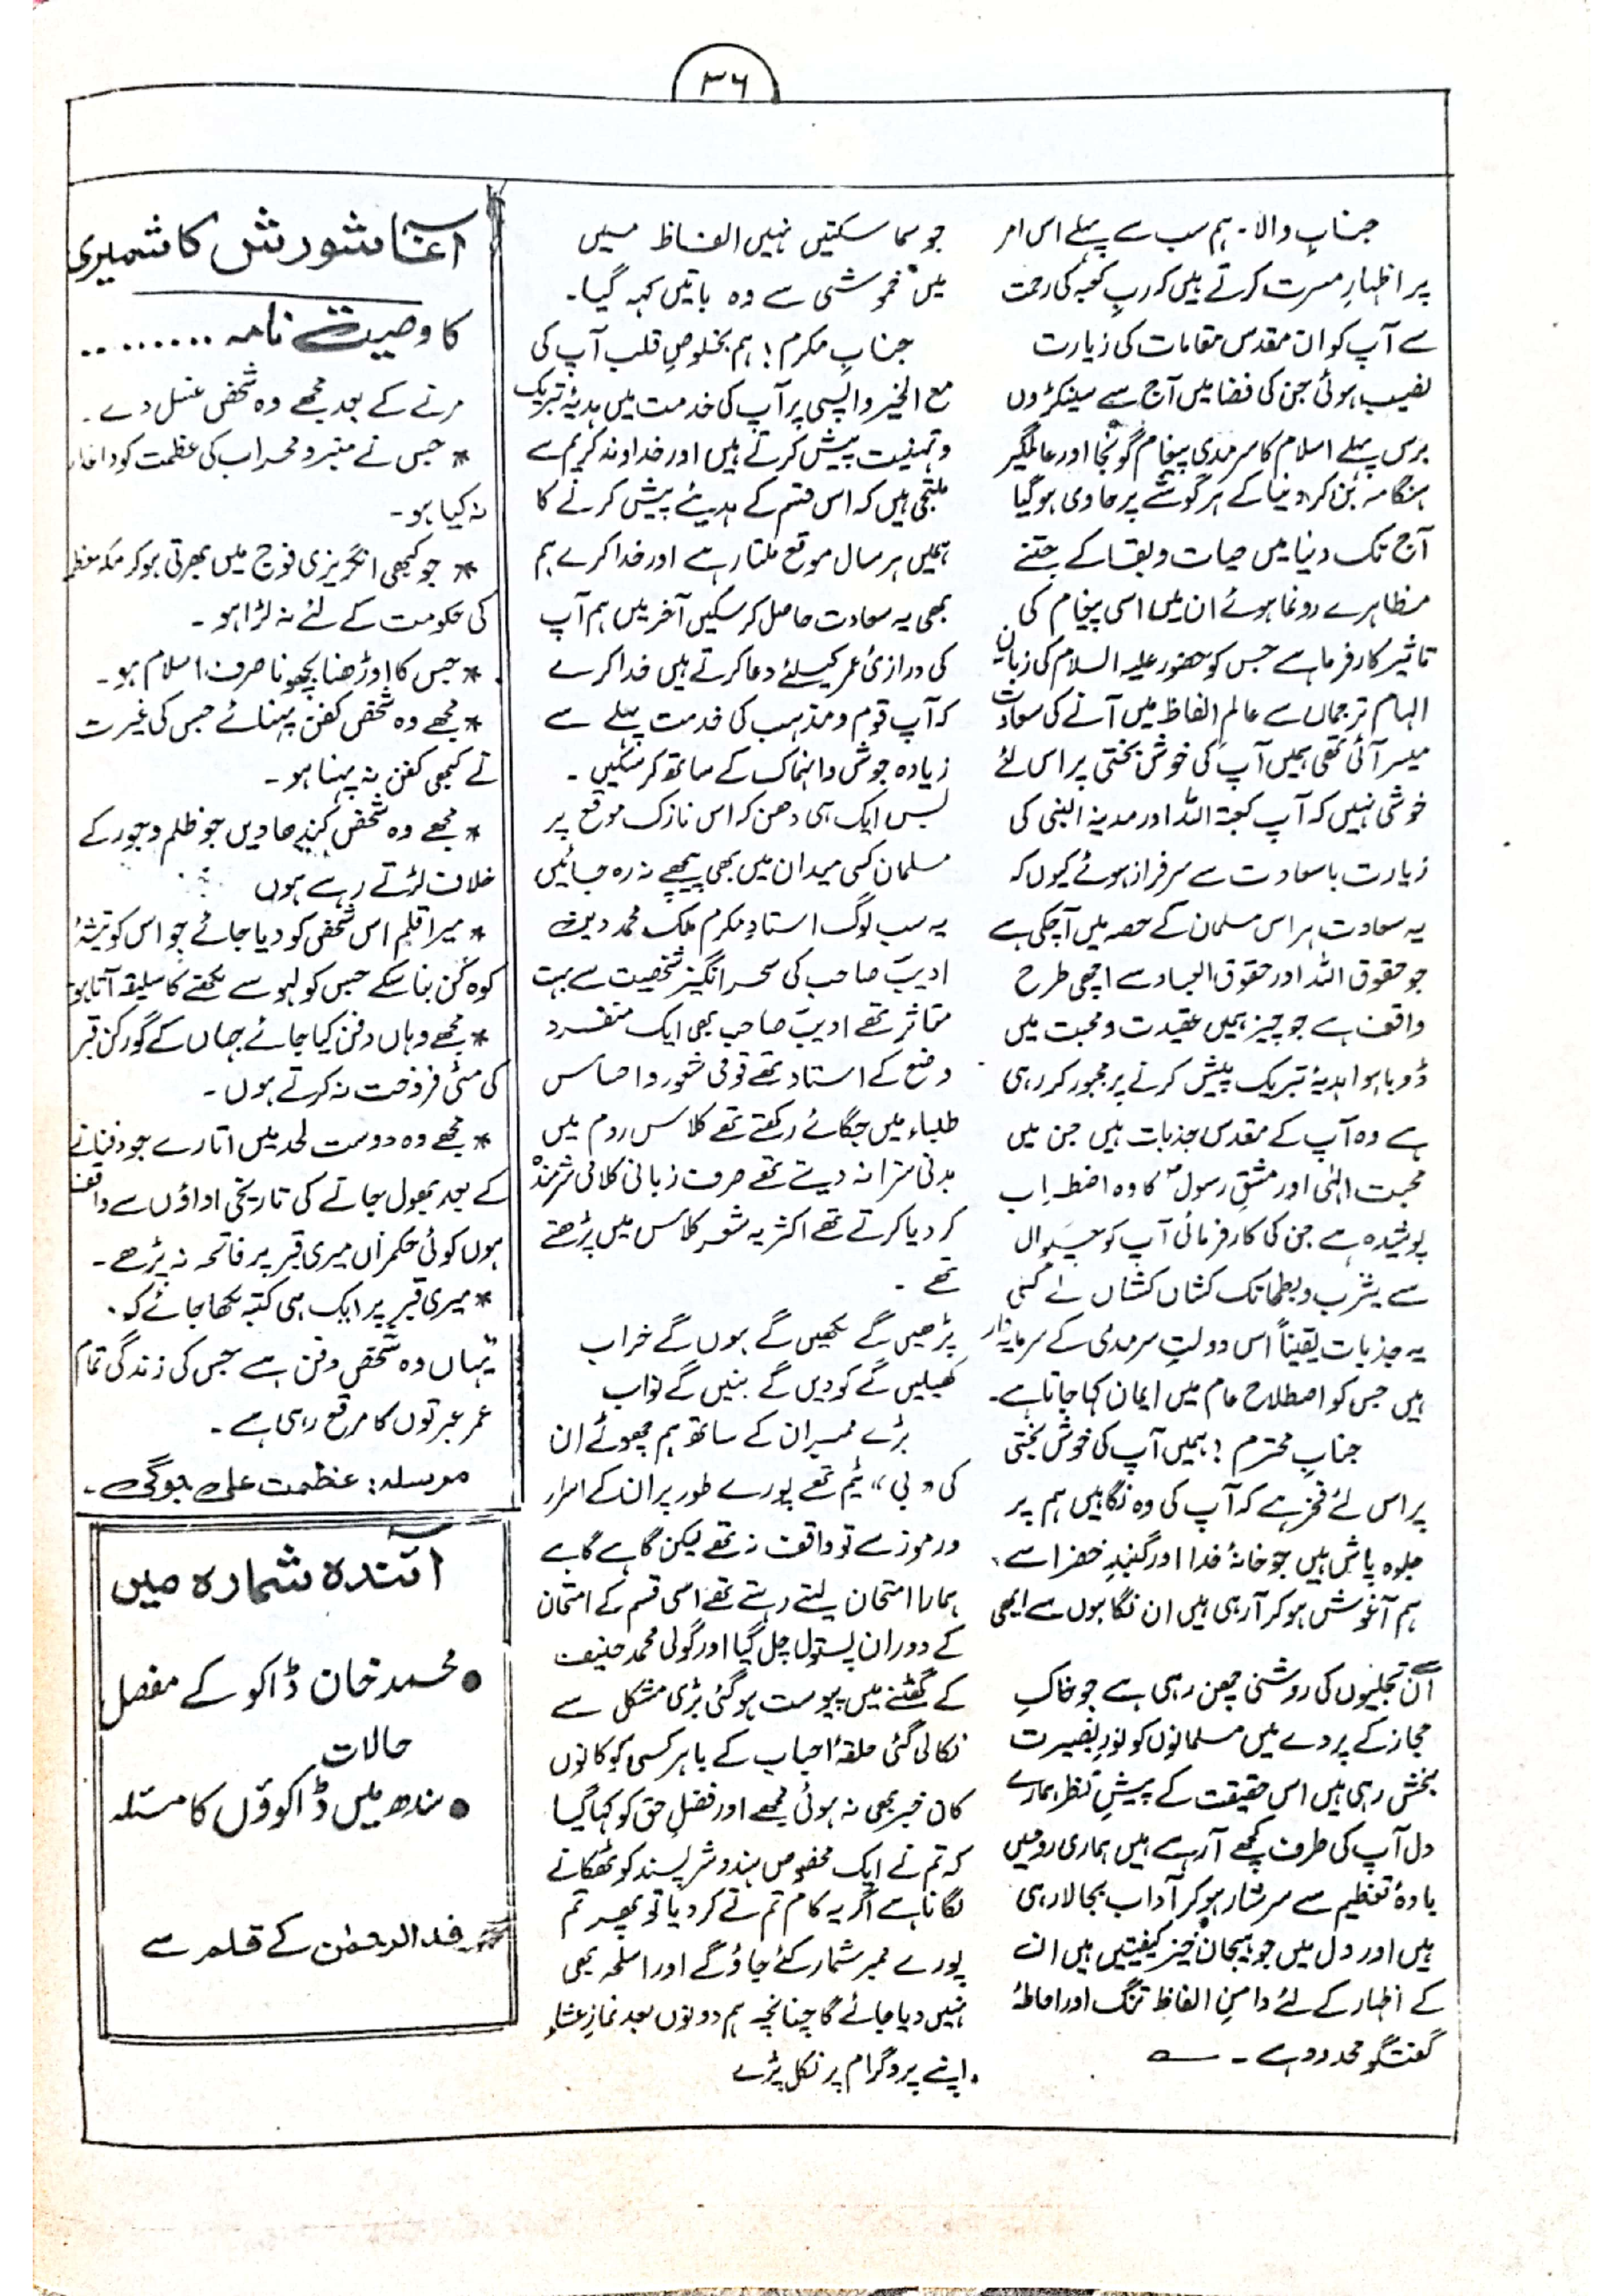 ۳۶
جنابِ والا۔ ہم سب سے پہلے اس امر
پر اظہارِ مسرت کرتے ہیں کہ ربِ کعبہ کی رحمت
سے آپ کو ان مقدس مقامات کی زیارت
نصیب ہوئی جن کی فضا میں آج سے سینکڑوں
برس پہلے اسلام کا سرمدی پیغام گونجا اور عالمگیر
ہنگامہ بن کر دنیا کے ہر گوشے پر حاوی ہوگیا
آج تک دنیا میں حیات و بقا کے جتنے
مظاہرے رونما ہوئے ان میں اسی پیغام کی
تاثیر کارفرما ہے جس کو حضور علیہ السلام کی زبان
الہام ترجماں سے عالمِ الفاظ میں آنے کی سعادت
میسر آئی تھی ہمیں آپ کی خوش بختی پر اس لئے
خوشی نہیں کہ آپ کعبۃ اللہ اور مدینۃ النبی کی
زیارت باسعادت سے سرفراز ہوئے کیوں کہ
یہ سعادت ہر اس مسلمان کے حصہ میں آچکی ہے
جو حقوق اللہ اور حقوق العباد سے اچھی طرح
واقف ہے جو چیز ہمیں عقیدت و محبت میں
ڈوبا ہوا ہدیۂ تبریک پیش کرنے پر مجبور کر رہی
ہے وہ آپ کے مقدس جذبات ہیں جن میں
محبت الہٰی اور عشقِ رسولؐ کا وہ اضطراب
پوشیدہ ہے جن کی کارفرمائی آپ کو چہوال
سے یثرب و بطحا تک کشاں کشاں لے گئی
یہ جذبات یقیناً اس دولتِ سرمدی کے سرمایہ دار
ہیں جس کو اصطلاح عام میں ایمان کہا جاتا ہے۔
جنابِ محترم! ہمیں آپ کی خوش بختی
پر اس لئے فخر ہے کہ آپ کی وہ نگاہیں ہم پر
جلوہ پاش ہیں جو خانۂ خدا اور گنبدِ خضرا سے
ہم آغوش ہو کر آرہی ہیں ان نگاہوں سے ابھی
اُن تجلیوں کی روشنی چھن رہی ہے جو خاکِ
حجاز کے پردے میں مسلمانوں کو نورِ بصیرت
بخش رہی ہیں اس حقیقت کے پیشِ نظر ہمارے
دل آپ کی طرف کھچے آرہے ہیں ہماری روحیں
بادۂ تعظیم سے سرشار ہو کر آداب بجا لا رہی
ہیں اور دل میں جو ہیجان خیز کیفیتیں ہیں ان
کے اظہار کے لئے دامنِ الفاظ تنگ اور احاطۂ
گفتگو محدود ہے۔
جو سما سکتیں نہیں الفاظ میں
میں خموشی سے وہ باتیں کہہ گیا۔
جنابِ مکرم! ہم بخلوصِ قلب آپ کی
مع الخیر واپسی پر آپ کی خدمت میں ہدیۂ تبریک
و تہنیت پیش کرتے ہیں اور خداوند کریم سے
ملتجی ہیں کہ اس قسم کے ہدیئے پیش کرنے کا
ہمیں ہر سال موقع ملتا رہے اور خدا کرے ہم
بھی یہ سعادت حاصل کر سکیں آخر میں ہم آپ
کی درازیٔ عمر کیلئے دعا کرتے ہیں خدا کرے
کہ آپ قوم و مذہب کی خدمت پہلے سے
زیادہ جوش و انہماک کے ساتھ کر سکیں۔
بس ایک ہی دھن کہ اس نازک موقع پر
مسلمان کسی میدان میں بھی پیچھے نہ رہ جائیں
یہ سب لوگ استادِ مکرم ملک محمد دین
ادیبؔ صاحب کی سحر انگیز شخصیت سے بہت
متاثر تھے ادیبؔ صاحب بھی ایک منفرد
وضع کے استاد تھے قومی شعور و احساس
طلباء میں جگائے رکھتے تھے کلاس روم میں
بدنی سزا نہ دیتے تھے صرف زبانی کلامی شرمندہ
کر دیا کرتے تھے اکثر یہ شعر کلاس میں پڑھتے
تھے۔
پڑھیں گے لکھیں گے ہوں گے خراب
کھیلیں گے کودیں گے بنیں گے نواب
بڑے ممبران کے ساتھ ہم چھوٹے ان
کی "بی" ٹیم تھے پورے طور پر ان کے اسرار
و رموز سے تو واقف نہ تھے لیکن گاہے گاہے
ہمارا امتحان لیتے رہتے تھے اسی قسم کے امتحان
کے دوران پستول چل گیا اور گولی محمد حنیف
کے گھٹنے میں پیوست ہو گئی بڑی مشکل سے
نکالی گئی حلقۂ احباب کے باہر کسی کو کانوں
کان خبر بھی نہ ہوئی مجھے اور فضلِ حق کو کہا گیا
کہ تم نے ایک مخصوص ہندو شرپسند کو ٹھکانے
لگانا ہے اگر یہ کام تم نے کر دیا تو پھر تم
پورے ممبر شمار کئے جاؤ گے اور اسلحہ بھی
نہیں دیا جائے گا چنانچہ ہم دونوں بعد نمازِ عشاء
اپنے پروگرام پر نکل پڑے
آغا شورش کاشمیری
کا وصیت نامہ .........
مرنے کے بعد مجھے وہ شخص غسل دے۔
* جس نے منبر و محراب کی عظمت کو داغدار
نہ کیا ہو۔
* جو کبھی انگریزی فوج میں بھرتی ہو کر مکہ معظمہ
کی حکومت کے لئے نہ لڑا ہو۔
* جس کا اوڑھنا بچھونا صرف اسلام ہو۔
* مجھے وہ شخص کفن پہنائے جس کی غیرت
نے کبھی کفن نہ پہنا ہو۔
* مجھے وہ شخص کندھا دیں جو ظلم و جور کے
خلاف لڑتے رہے ہوں
* میرا قلم اس شخص کو دیا جائے جو اس کو تیشۂ
کوہ کن بنا سکے جس کو لہو سے لکھنے کا سلیقہ آتا ہو
* مجھے وہاں دفن کیا جائے جہاں کے گورکن قبر
کی مٹی فروخت نہ کرتے ہوں۔
* مجھے وہ دوست لحد میں اتارے جو دفنانے
کے بعد بھول جانے کی تاریخی اداؤں سے واقف
ہوں کوئی حکمراں میری قبر پر فاتحہ نہ پڑھے۔
* میری قبر پر ایک ہی کتبہ لکھا جائے کہ۔
یہاں وہ شخص دفن ہے جس کی زندگی تمام
عمر عبرتوں کا مرقع رہی ہے۔
مرسلہ: عظمت علی جوگی۔
آئندہ شمارہ میں
● محمد خان ڈاکو کے مفصل
حالات
● سندھ میں ڈاکوؤں کا مسئلہ
فدالرحمٰن کے قلم سے